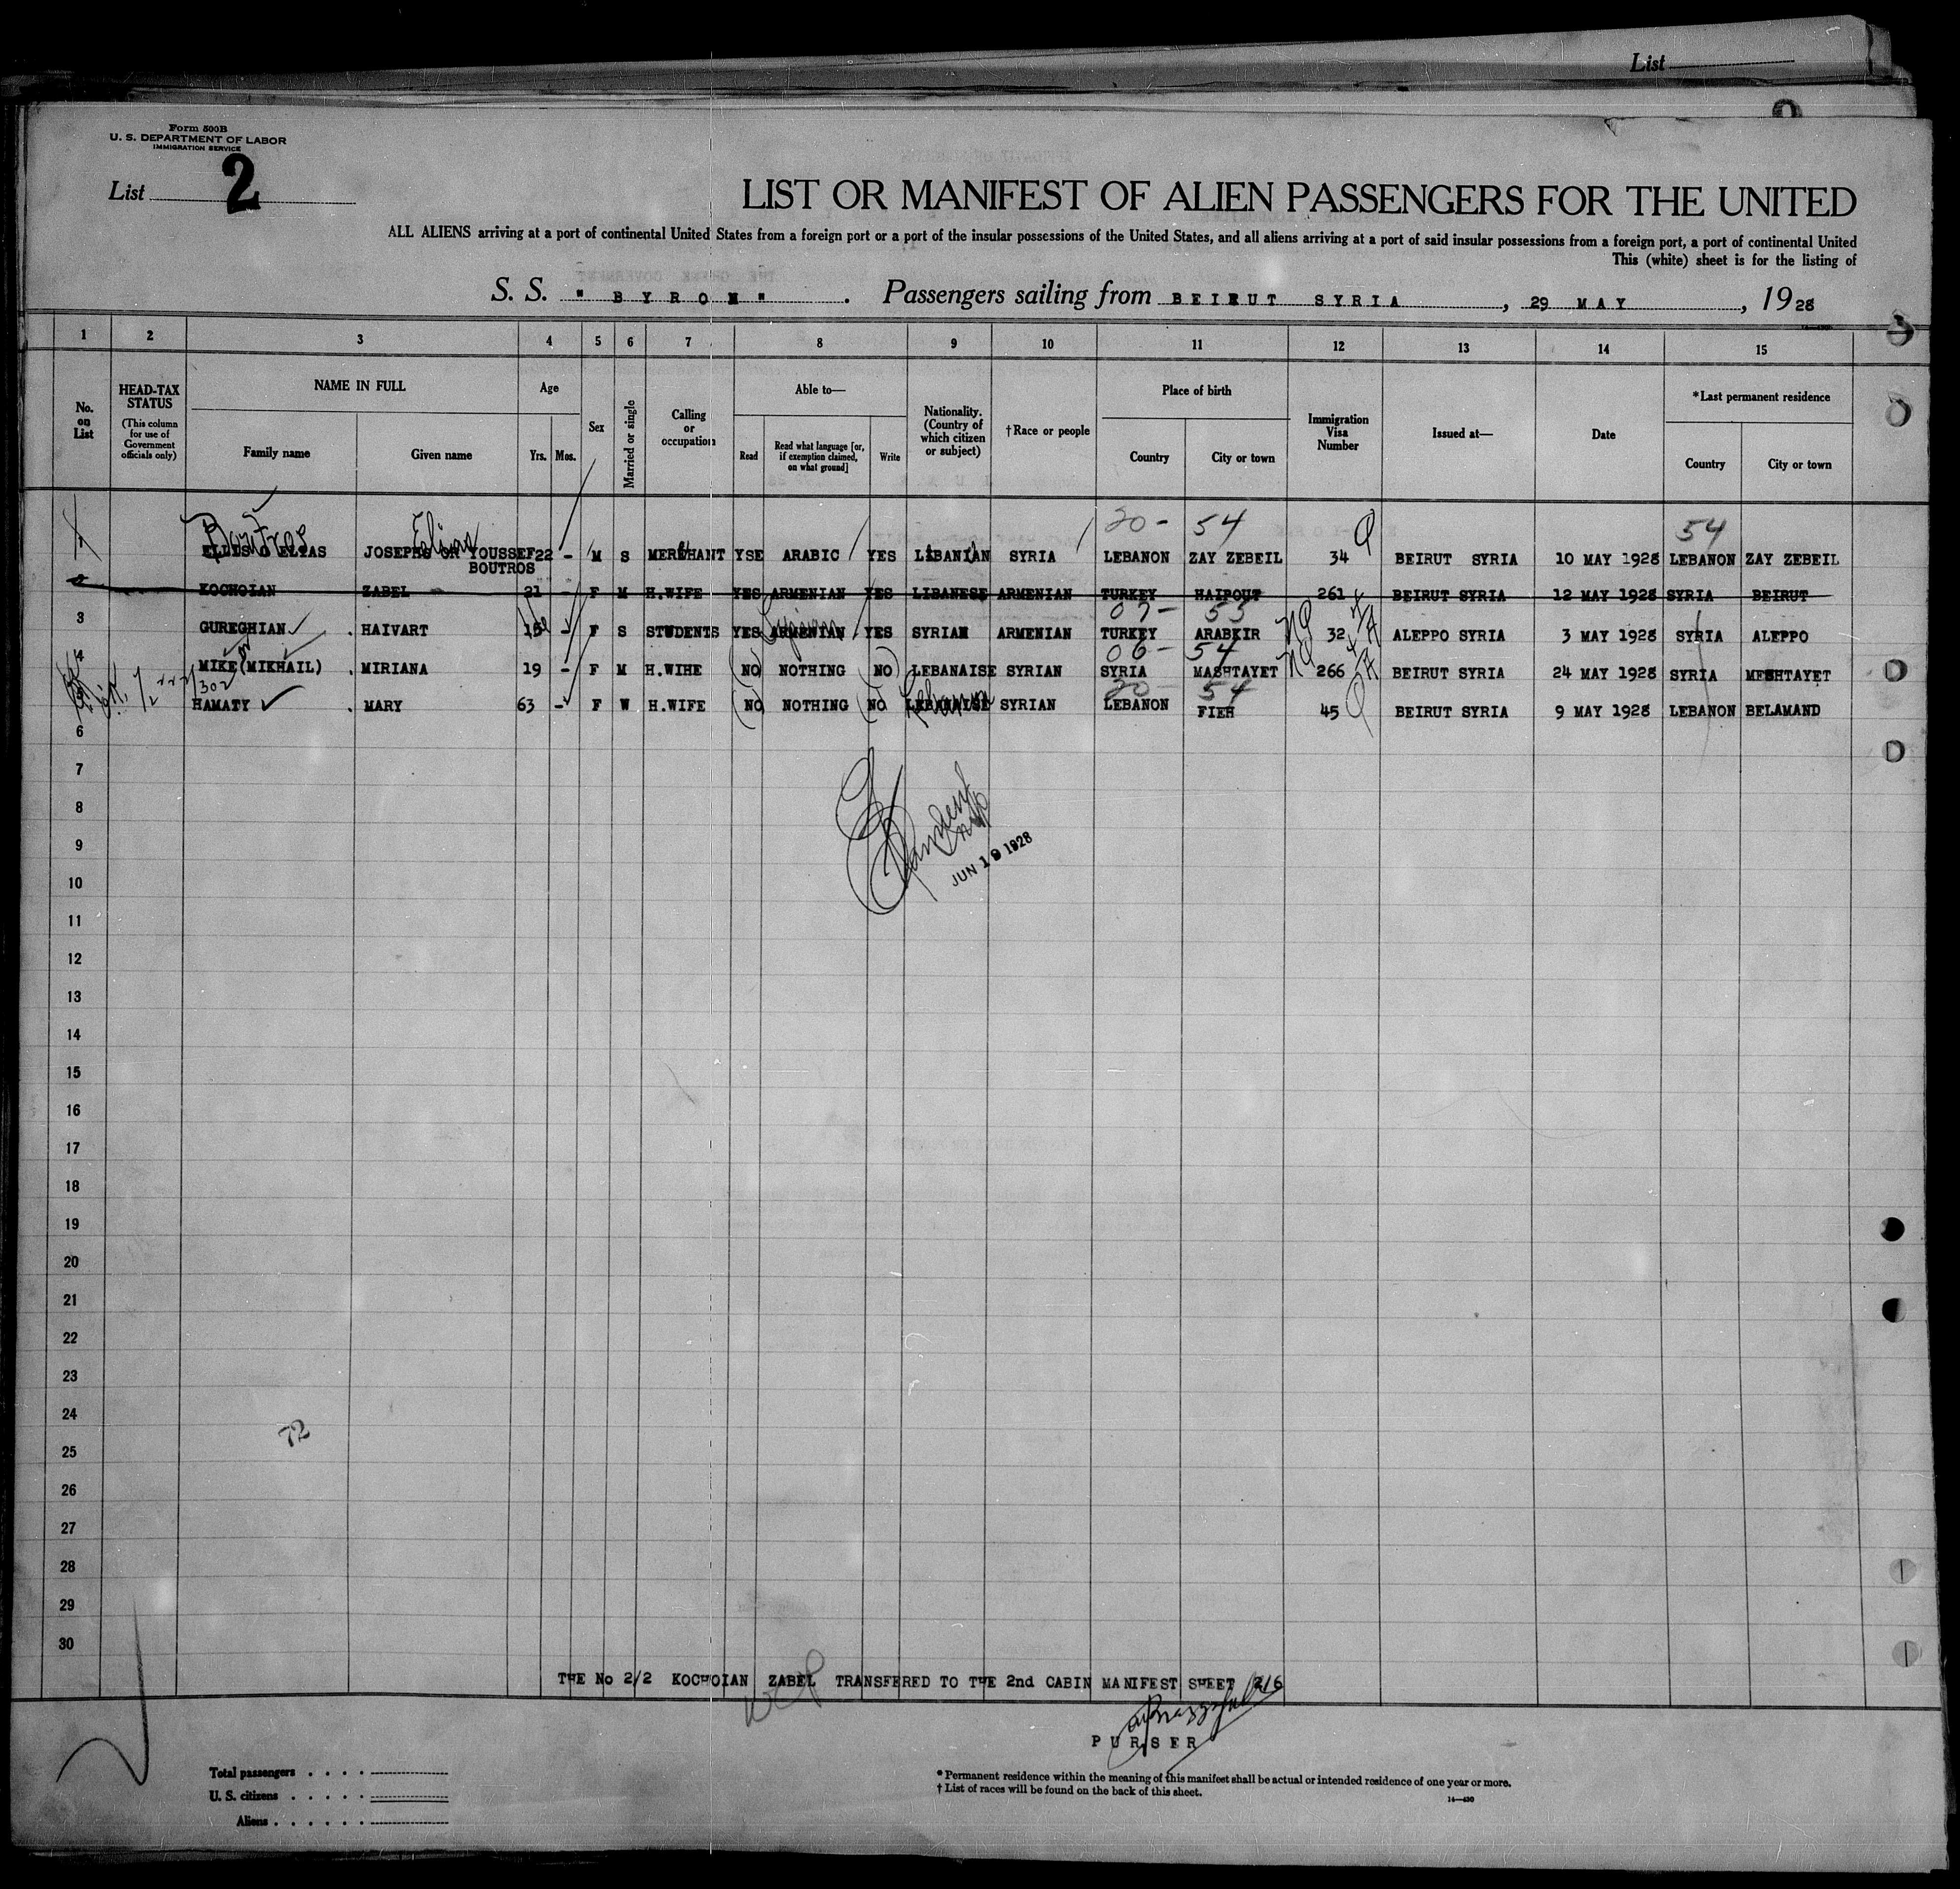 List
Form 500B
U. S. DEPARTMENT OF LABOR
IMMIGRATION SERVICE
List 2
LIST OR MANIFEST OF ALIEN PASSENGERS FOR THE UNITED
ALL ALIENS arriving at a port of continental United States from a foreign port or a port of the insular possessions of the United States, and all aliens arriving at a port of said insular possessions from a foreign port, a port of continental United
This (white) sheet is for the listing of
S. S. "BYRON". Passengers sailing from BEIRUT SYRIA, 29 MAY, 1928
1 2 3 4 5 6 7 8 9 10 11 12 13 14 15
No. on List
HEAD-TAX STATUS
(This column for use of Government officials only)
NAME IN FULL
Family name
Given name
Age
Yrs.
Mos.
Sex
Married or single
Calling or occupation
Able to—
Read
Read what language [or, if exemption claimed, on what ground]
Write
Nationality. (Country of which citizen or subject)
†Race or people
Place of birth
Country
City or town
Immigration Visa Number
Issued at—
Date
*Last permanent residence
Country
City or town
Boutros Elias 20- 54 Q 54
ELIAS JOSEPHS OR YOUSSEF 22 - M S MERCHANT YSE ARABIC YES LIBANIAN SYRIA LEBANON ZAY ZEBEIL 34 BEIRUT SYRIA 10 MAY 1928 LEBANON ZAY ZEBEIL
BOUTROS
2 KOCHOIAN ZABEL 21 - F M H.WIFE YES ARMENIAN YES LIBANESE ARMENIAN TURKEY HAIPOUT 261 BEIRUT SYRIA 12 MAY 1928 SYRIA BEIRUT
07- 53
3 GUREGHIAN HAIVART 15 - F S STUDENTS YES ARMENIAN YES SYRIAN ARMENIAN TURKEY ARABKIR NQ 32 ALEPPO SYRIA 3 MAY 1928 SYRIA ALEPPO
06- 54
4 MIKE (MIKHAIL) MIRIANA 19 - F M H.WIHE NO NOTHING NO LEBANAISE SYRIAN SYRIA MASHTAYET NQ 266 BEIRUT SYRIA 24 MAY 1928 SYRIA MESHTAYET
302 20- 54
HAMATY MARY 63 - F W H.WIFE NO NOTHING NO LEBANAISE SYRIAN LEBANON FIEH 45 Q BEIRUT SYRIA 9 MAY 1928 LEBANON BELAMAND
6
7
8
JUN 19 1928
9
10
11
12
13
14
15
16
17
18
19
20
21
22
23
24
72
25
26
27
28
29
30
THE No 2/2 KOCHOIAN ZABEL TRANSFERED TO THE 2nd CABIN MANIFEST SHEET 216
PURSER
Total passengers
U. S. citizens
Aliens
*Permanent residence within the meaning of this manifest shall be actual or intended residence of one year or more.
†List of races will be found on the back of this sheet.
14—430